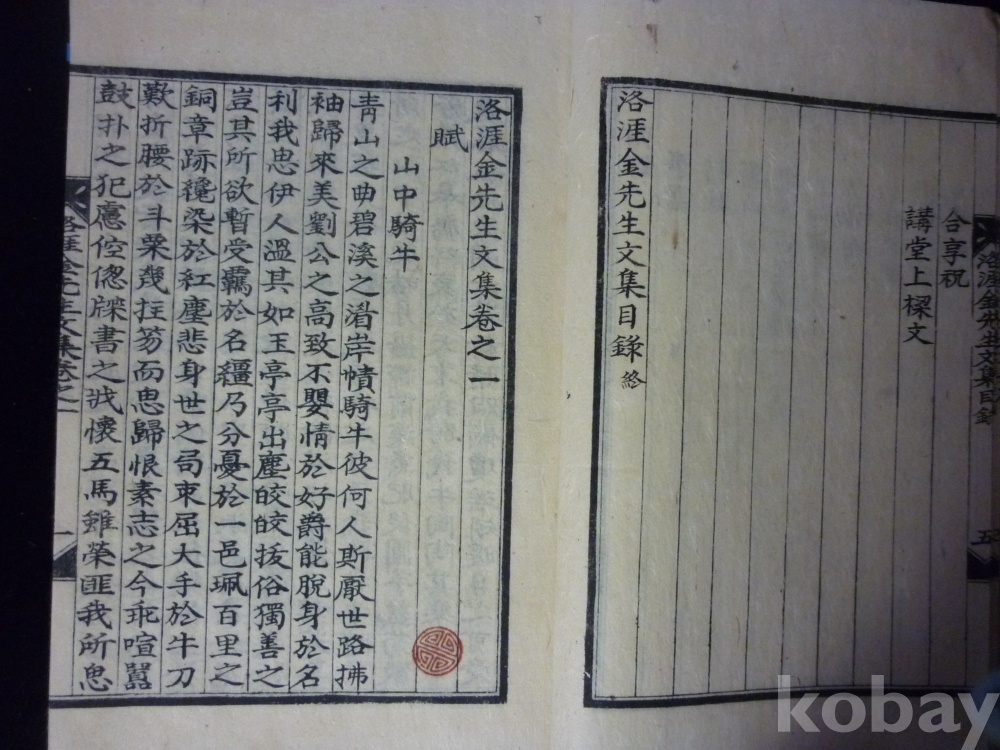 合享祝
講堂上樑文
洛涯金先生文集目錄 終
洛涯金先生文集目錄
五
洛涯金先生文集卷之一
賦
山中騎牛
靑山之曲碧溪之湝岸幘騎牛彼何人斯厭世路拂
袖歸來美劉公之高致不嬰情於好爵能脫身於名
利我思伊人溫其如玉亭亭出塵皎皎拔俗獨善之
豈其所欲暫受羈於名繮乃分憂於一邑珮百里之
銅章跡纔染於紅塵悲身世之局束屈大手於牛刀
歎折腰於斗粟幾拄笏而思歸恨素志之今乖喧嚣
鼓扑之犯慮倥偬牒書之戕懷五馬雖榮匪我所思
洛涯金先生文集卷之一
一
kobay